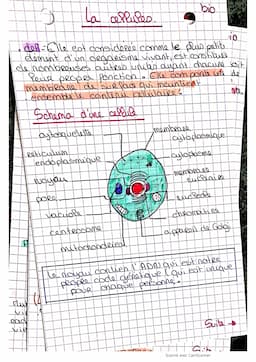 bio
La cellules
. def: Elle est considérée comme le plus petit
élément d'un organisme vivant, est constitué
de nombreuses autres unités ayant chacune
leur propre fonction. Elle comporte un
membrane de surface qui maintient
ensemble le contenu cellulaire.
Schéma d'une cellule
cytosquelette
membrane
cytoplasmique
réticulum
endoplasmique
cytoplasme
noyau
membrane
nucléaire
pore
nucléole
vacuole
chromatine
centrosome
appareil de Golgi
mitochondrie
Le noyau contient l'ADN qui est notre
propre code génétique (qui est unique
pour chaque personne.
Suite →